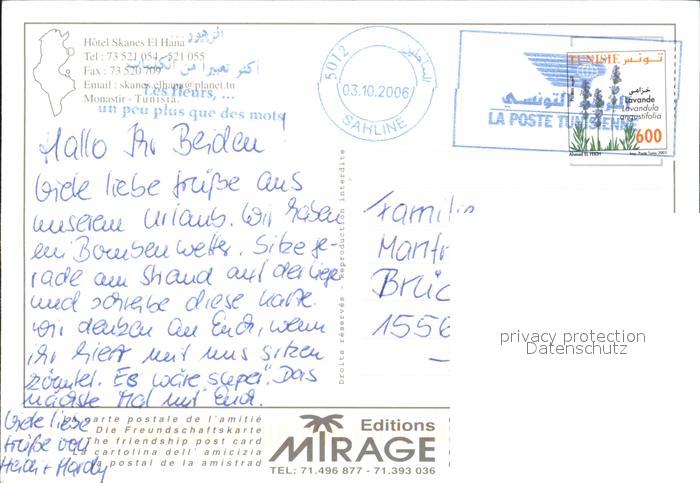 Hôtel Skanes El Hana
Tel : 73 521 054 521 055
Fax : 73 520 709
Email : skanes.elhana@planet.tn
Monastir - Tunisia.
الزهور...
أكثر تعبيرا من الكلمات
Les fleurs, ...
un peu plus que des mots
5012
الساحلين
03.10.2006
SAHLINE
البريد التونسي
LA POSTE TUNISIENNE
TUNISIE تونس
خزامى
Lavande
Lavandula
angustifolia
600
Hallo Ihr Beiden!
Viele liebe Grüße aus
unserem Urlaub. Wir haben
ein Bombenwetter. Sitze ge-
rade am Strand auf der Liege
und schreibe diese Karte.
Wir denken an Euch, wenn
ihr hier mit uns sitzen
könntet. Es wäre super". Das
nächste Mal mit Euch.
Viele liebe
Grüße von
Heidi + Hardy
Droits réservés - Reproduction interdite
Familie
Manfr
Brüc
1556
privacy protection
Datenschutz
carte postale de l'amitié
Die Freundschaftskarte
The friendship post card
cartolina dell' amicizia
postal de la amistad
Editions
MIRAGE
TEL: 71.496 877 - 71.393 036